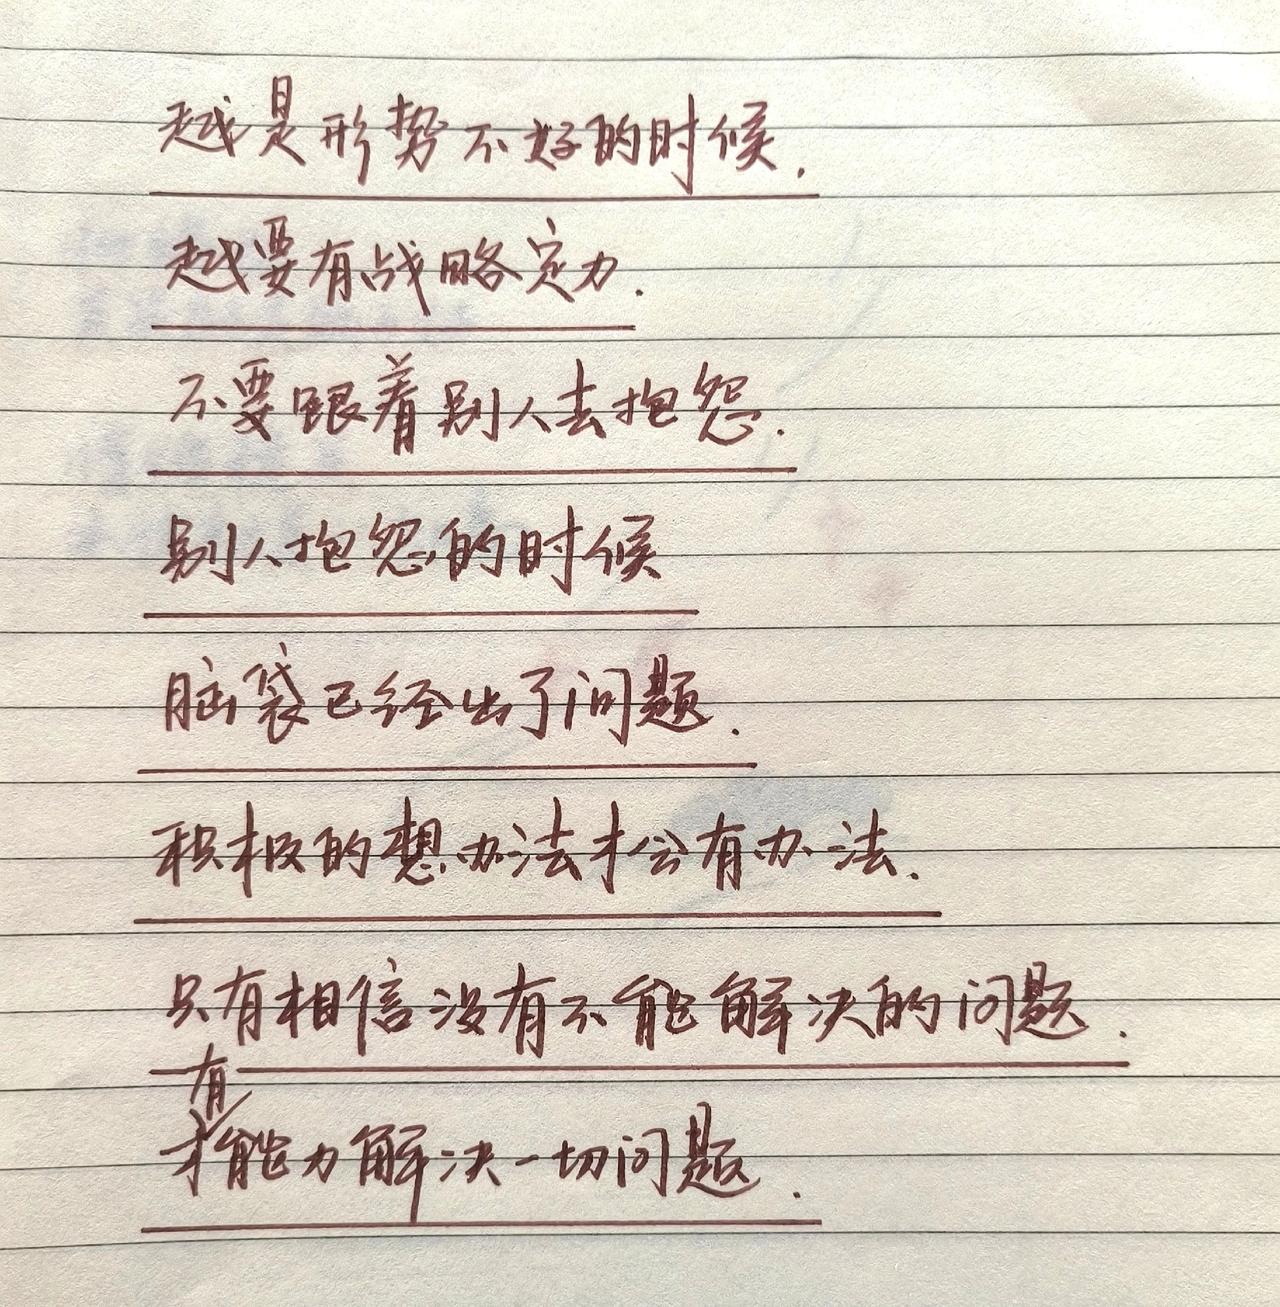 越是形势不好的时候.
越要有战略定力.
不要跟着别人去抱怨.
别人抱怨的时候
脑袋已经出了问题.
积极的想办法才会有办法.
只有相信没有不能解决的问题.
才有能力解决一切问题.